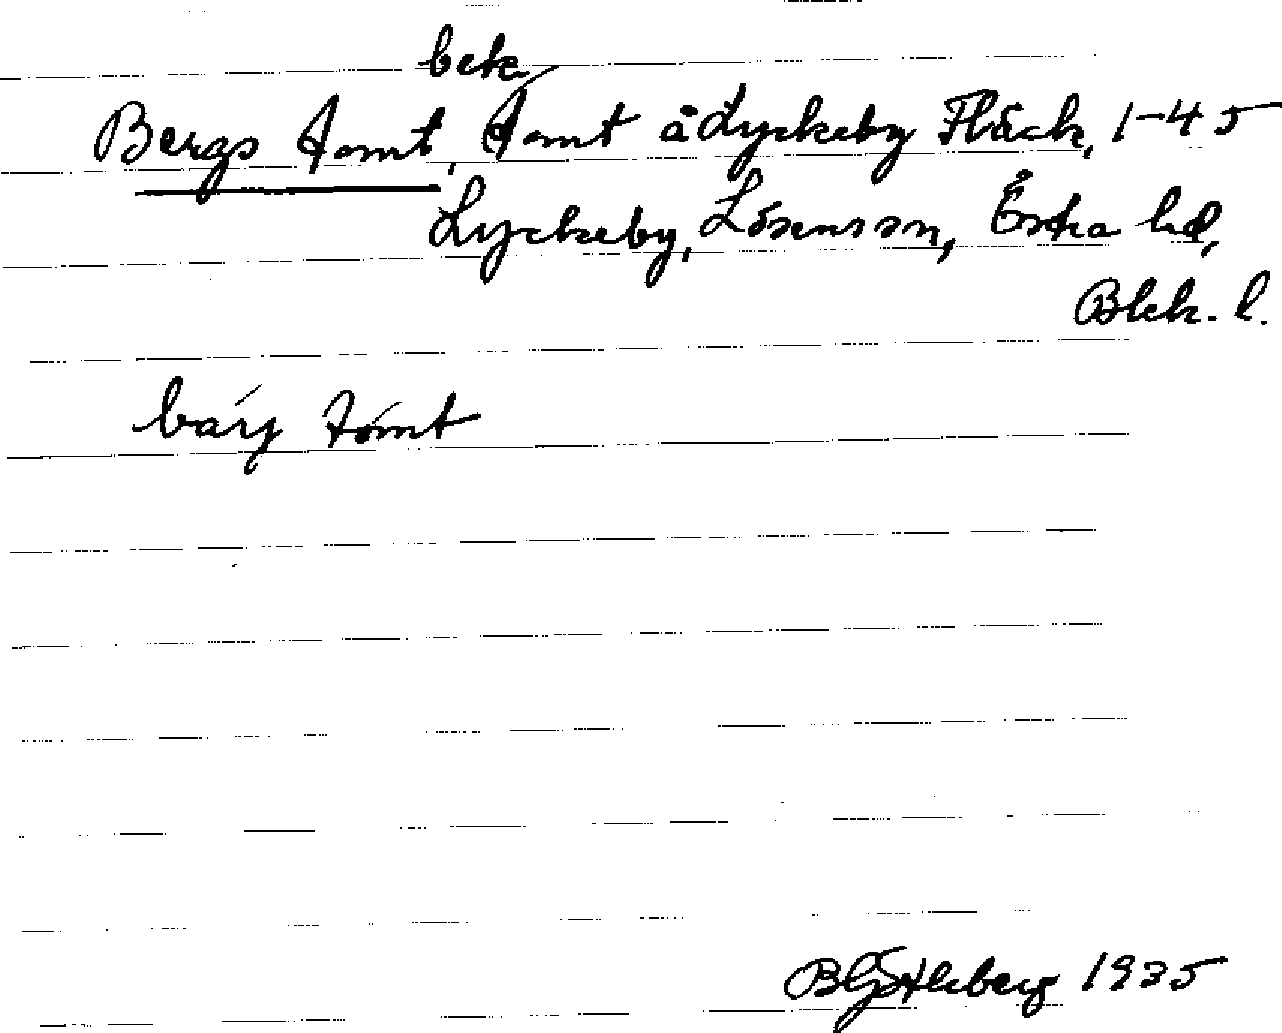 bek
Bergs Tomt, Tomt å Lyckeby Fläck, 1-45
Lyckeby, Lösens sn, Östra hd,
Blek. l.
bárj tómt
B Götlberg 1935